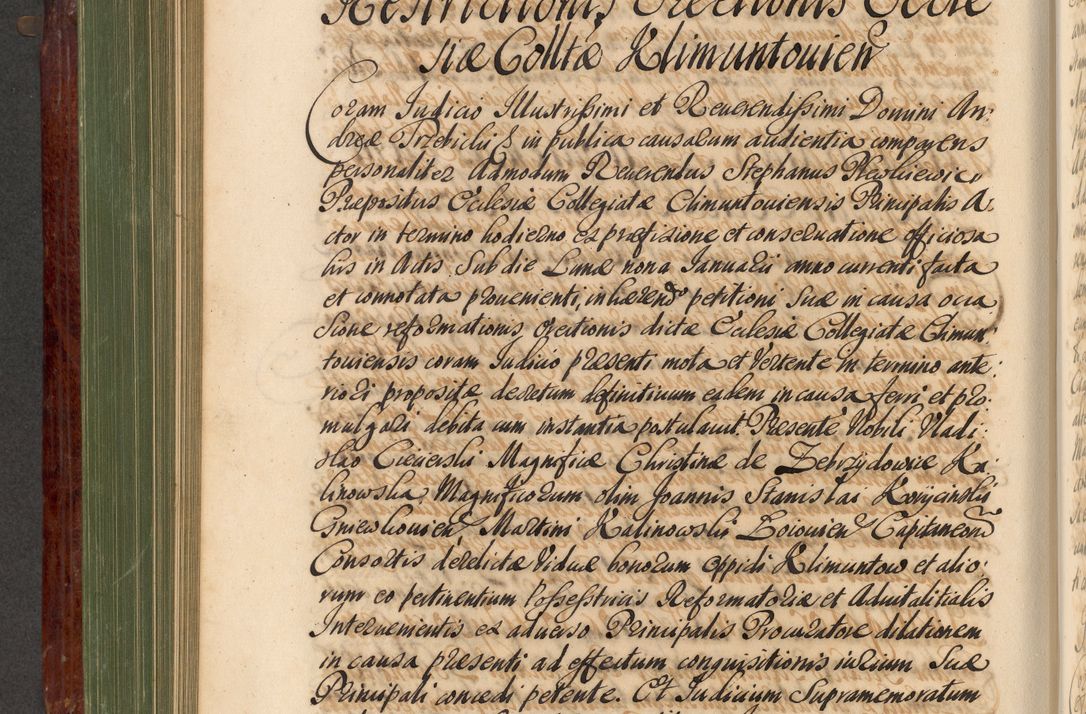 Restrictionis Erectionis Eccle
siæ Colltæ Klimuntouien
Coram Iudicio Illustrissimi et Reuerendissimi Domini An:
dreæ Trzebicki & in publica causarum audientia comparens
personaliter Admodum Reuerendus Stephanus
Præpositus Ecclesiæ Collegiatæ Climuntouiensis Principalis A:
ctor in termino hodierno ex præfixione et conseruatione officiosa
his in Actis Sub die Lunæ nona Ianuarii anno currenti facta
et connotata prouenienti, inhærendo petitioni Suæ in causa occa
sione reformationis erectionis dictæ Ecclesiæ Collegiatæ Climun
touiensis coram Iudicio præsenti mota et Vertente in termino ante:
riori propositæ decretum definitiuum eadem in causa ferri et pro:
mulgari debita cum instantia postulauit. Præsente Nobili Vladi:
slao Cieierski Magnificæ Christinæ de Zebrzydowicæ Ka:
linowska, Magnificorum olim Joannis Stanislai
Gniewkouien Martini Kalinowski Capitaneorum
Consortis derelictæ Viduæ bonorum oppidi Klimuntow et alio:
rum eo pertinentium Possestricis Reformatoriæ et Aduitalitialis
Interuenientis ex aduerso Principalis Procuratore dilationem
in causa præsenti ad effectum conquisitionis iurium Suæ
Principali concedi petente. Et Iudicium Supramemoratum